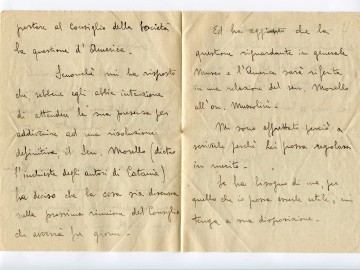 portare al Consiglio della Società
la questione d'America.
Senonchè mi ha risposto
che, sebbene egli abbia intenzione
di attendere la sua presenza per
addivenire ad una risoluzione
definitiva il Sen. Morello (dietro
l'inchiesta degli autori di Catania)
ha deciso che la cosa sia discussa
nella prossima riunione del Consiglio
che avverrà fra giorni.
Ed ha aggiunto che la
questione riguardante in generale
Musco e l'America sarà riferita
in una relazione del sen. Morello
all'on. Mussolini.
Mi sono affrettato perciò a
scriverle perchè Lei possa regolarsi
in merito.
Se ha bisogno di me, per
quello che io possa esserle utile, mi
tenga a sua disposizione.